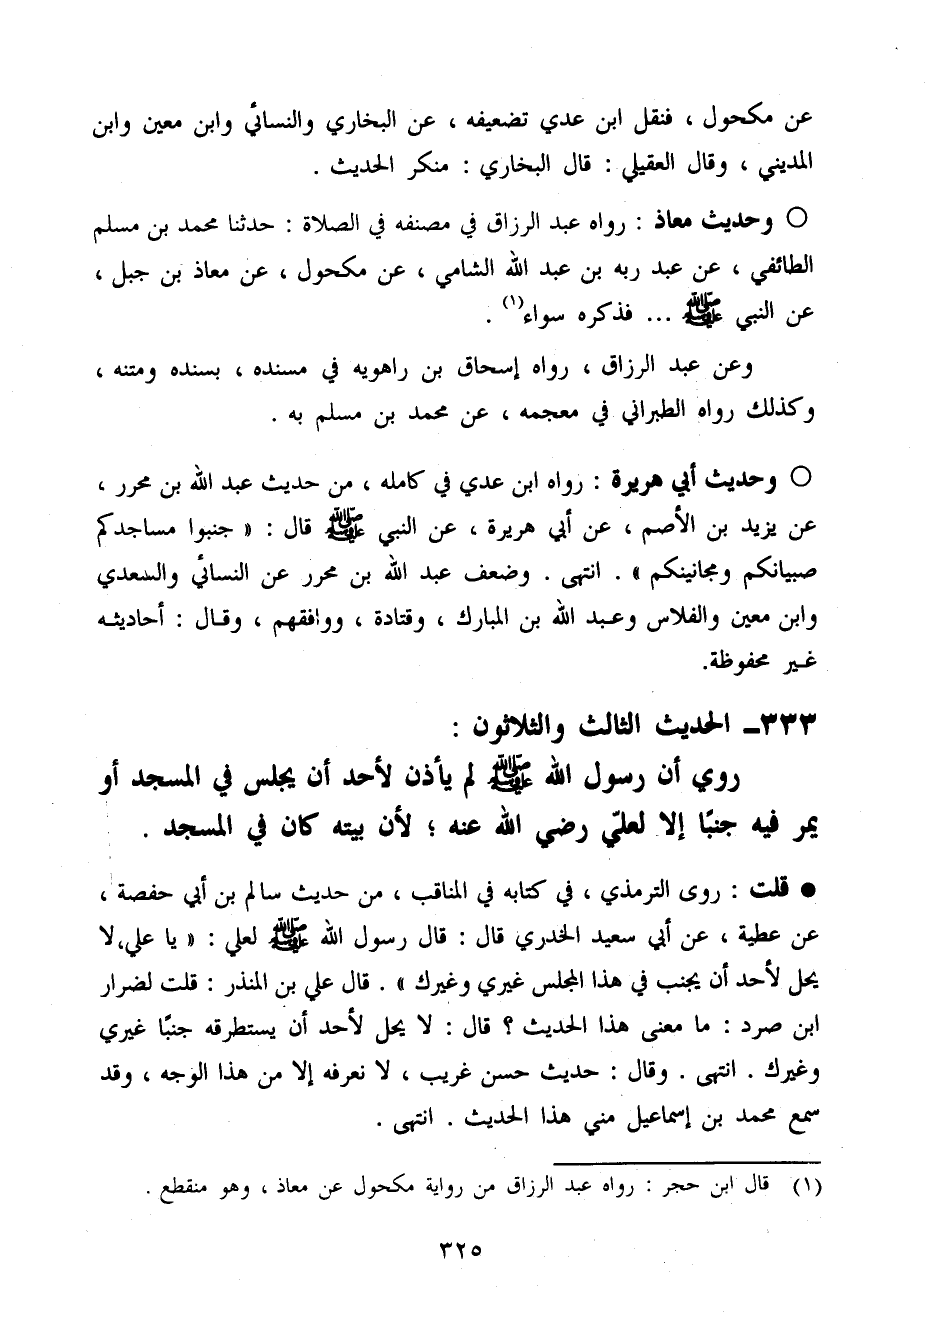 عن مكحول ، فنقل ابن عدي تضعيفه ، عن البخاري والنسائي وابن معين وابن
المديني ، وقال العقيلي : قال البخاري : منكر الحديث .
○ وحديث معاذ : رواه عبد الرزاق في مصنفه في الصلاة : حدثنا محمد بن مسلم
الطائفي ، عن عبد ربه بن عبد الله الشامي ، عن مكحول ، عن معاذ بن جبل ،
عن النبي ﷺ ... فذكره سواء(١) .
وعن عبد الرزاق ، رواه إسحاق بن راهويه في مسنده ، بسنده ومتنه ،
وكذلك رواه الطبراني في معجمه ، عن محمد بن مسلم به .
○ وحديث أبي هريرة : رواه ابن عدي في كامله ، من حديث عبد الله بن محرر ،
عن يزيد بن الأصم ، عن أبي هريرة ، عن النبي ﷺ قال : « جنبوا مساجدكم
صبيانكم ومجانينكم » . انتهى . وضعف عبد الله بن محرر عن النسائي والسعدي
وابن معين والفلاس وعبد الله بن المبارك ، وقتادة ، ووافقهم ، وقال : أحاديثه
غير محفوظة.
٣٣٣ـ الحديث الثالث والثلاثون :
روي أن رسول الله ﷺ لم يأذن لأحد أن يجلس في المسجد أو
يمر فيه جنبًا إلا لعليّ رضي الله عنه ؛ لأن بيته كان في المسجد .
● قلت : روى الترمذي ، في كتابه في المناقب ، من حديث سالم بن أبي حفصة ،
عن عطية ، عن أبي سعيد الخدري قال : قال رسول الله ﷺ لعلي : « يا علي،لا
يحل لأحد أن يجنب في هذا المجلس غيري وغيرك » . قال علي بن المنذر : قلت لضرار
ابن صرد : ما معنى هذا الحديث ؟ قال : لا يحل لأحد أن يستطرقه جنبًا غيري
وغيرك . انتهى . وقال : حديث حسن غريب ، لا نعرفه إلا من هذا الوجه ، وقد
سمع محمد بن إسماعيل مني هذا الحديث . انتهى .
(١) قال ابن حجر : رواه عبد الرزاق من رواية مكحول عن معاذ ، وهو منقطع .
٣٢٥